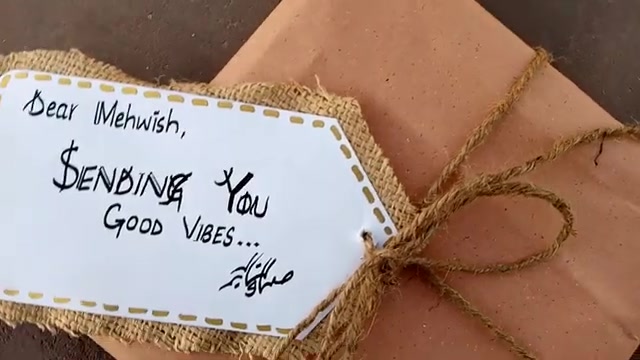 Dear Mehwish,
SENDING YOU
GOOD VIBES...